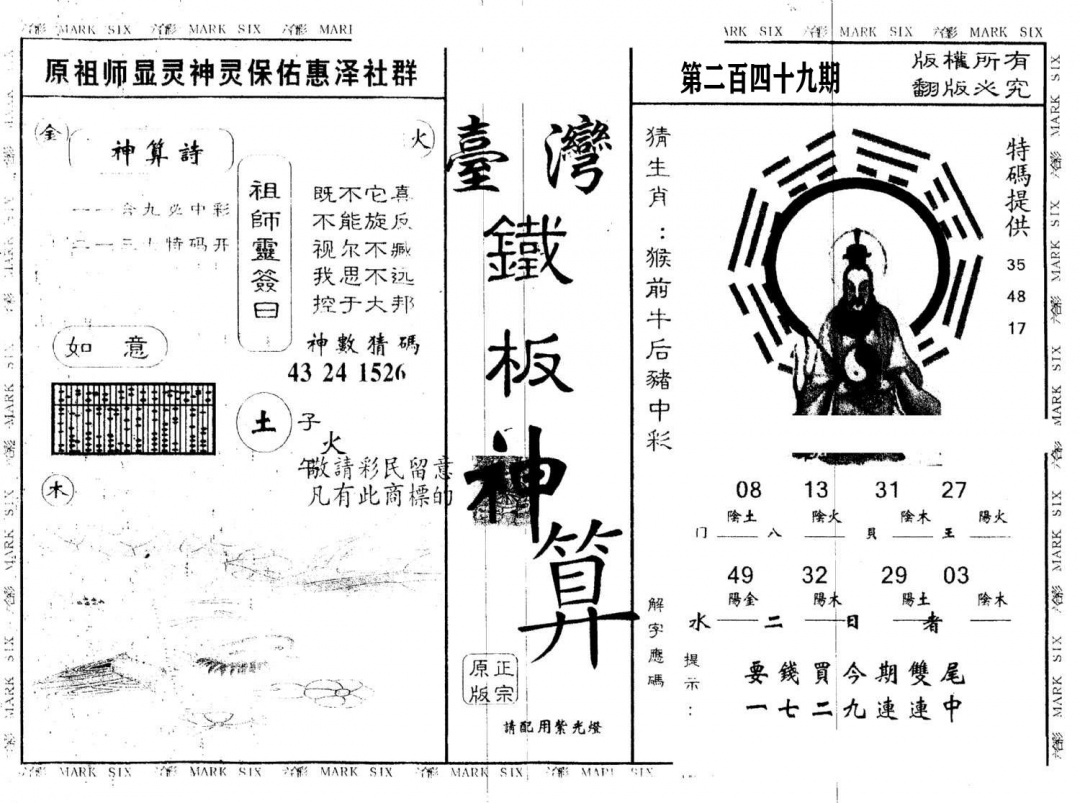 MARK SIX MARK SIX MARK SIX MARK SIX MARK SIX
原祖师显灵神灵保佑惠泽社群
金
火
神算詩
一一合九必中彩
二一三七特码开
祖師靈簽曰
既不它真
不能旋反
视尔不臧
我思不远
控于大邦
如意
神數猜碼
43 24 1526
土
子
火
午
敬請彩民留意
凡有此商標的
木
臺灣
鐵板神算
正宗
原版
請配用紫光燈
第二百四十九期
版權所有
翻版必究
猜生肖：猴前牛后豬中彩
特碼提供
35
48
17
08 13 31 27
陰土 陰火 陰木 陽火
门 八 貝 王
49 32 29 03
陽金 陽木 陽土 陰木
水 二 日 者
解字應碼
提示：
要錢買今期雙尾
一七二九連連中
MARK SIX MARK SIX MARK SIX MARK SIX